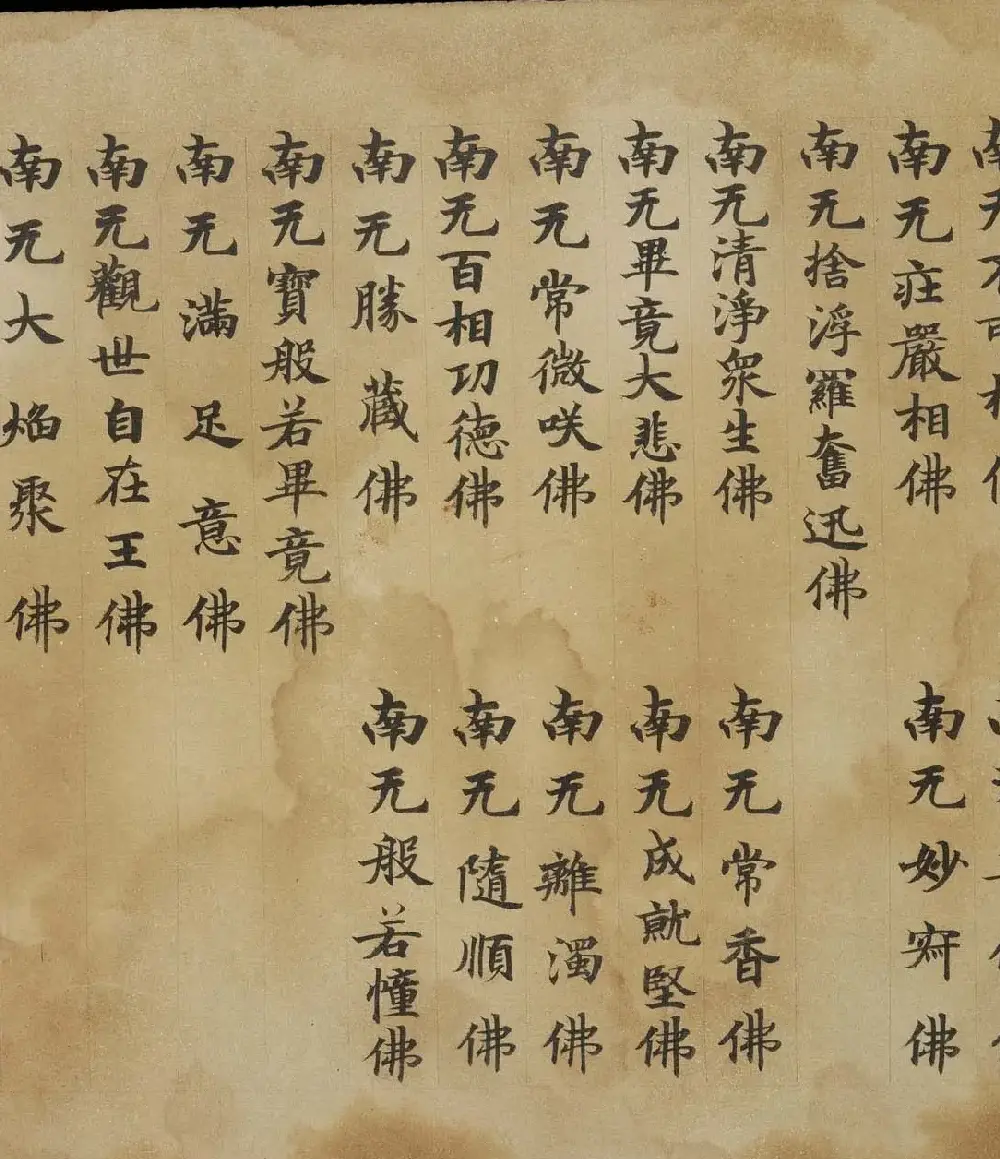 南无㽵嚴相佛
南无妙寂佛
南无捨浮羅奮迅佛
南无清淨衆生佛
南无常香佛
南无畢竟大悲佛
南无成就堅佛
南无常微咲佛
南无離濁佛
南无百相功德佛
南无隨順佛
南无勝藏佛
南无般若憧佛
南无寶般若畢竟佛
南无滿足意佛
南无觀世自在王佛
南无大焰聚佛